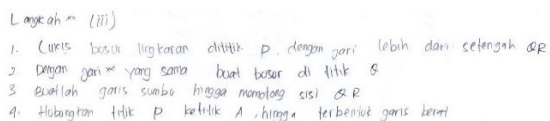 Langkah" (iii)
1. Lukis busur lingkaran dititik P. dengan jari lebih dari setengah QR
2. Dengan jari" yang sama buat busur di titik Q
3 Buatlah garis sumbu hingga memotong sisi QR
4. Hubungkan titik P ketitik A, hingga terbentuk garis berat